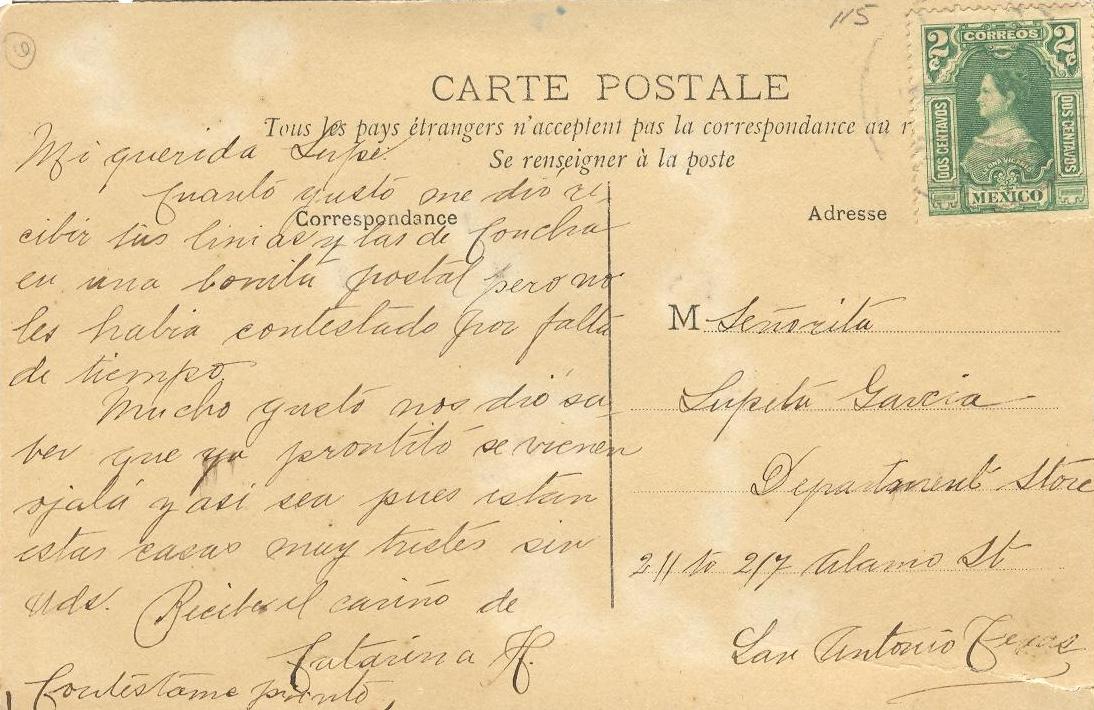 115
CARTE POSTALE
Tous les pays étrangers n'acceptent pas la correspondance au r
Se renseigner à la poste
Correspondance
Adresse
2c CORREOS 2c
DOS CENTAVOS
DOS CENTAVOS
MEXICO
Mi querida Lupe.
Cuanto gusto me dió re-
cibir tus linias y las de Concha
en una bonita postal pero no
les habia contestado por falta
de tiempo.
Mucho gusto nos dió sa-
ber que ya prontito se vienen
ojalá y asi sea pues estan
estas casas muy tristes sin
Uds. Recibe el cariño de
Catarina H.
Contéstame pronto,
M Señorita
Lupita Garcia
Department Store
211 to 217 Alamo St
San Antonio Texas